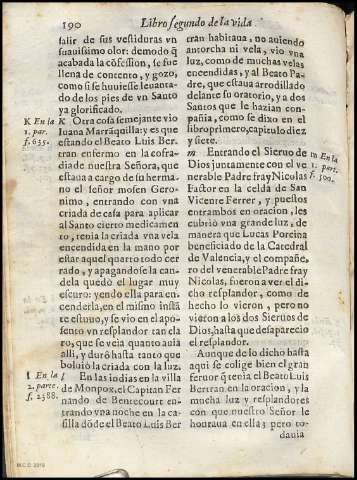 190 Libro segundo de la vida
salir de sus vestiduras vn
suauissimo olor: demodo q̃
acabada la cõfession, se fue
llena de contento, y gozo,
como si se huuiesse leuanta-
do de los pies de vn Santo
ya glorificado.
K Otra cosa semejante vio
Iuana Marrãquilla: y es que
estando el Beato Luis Ber-
tran enfermo en la cofra-
dia de nuestra Señora, que
estaua a cargo de su herma-
no el señor mosen Gero-
nimo, entrando con vna
criada de casa para aplicar
al Santo cierto medicamen
to, tenia la criada vna vela
encendida en la mano por
estar aquel quarto todo cer
rado, y apagandose la can-
dela quedó el lugar muy
escuro: yendo ella para en-
cenderla, en el mismo instã
te estuuo, y se vio en el apo-
sento vn resplandor tan cla
ro, que se veia quanto auia
alli, y duró hasta tanto que
boluiò la criada con la luz.
l En las indias en la villa
de Monpox, el Capitan Fer
nando de Bentecourt en-
trando vna noche en la ca-
silla dõde el Beato Luis Ber
K En la
1. par.
f. 635.
l En la
2. parte.
f. 2588.
tran habitaua, no auiendo
antorcha ni vela, vio vna
luz, como de muchas velas
encendidas, y al Beato Pa-
dre, que estaua arrodillado
delante su oratorio, y a dos
Santos que le hazian con-
pañia, como se dixo en el
libro primero, capitulo diez
y siete.
m Entrando el Sieruo de
Dios juntamente con el ve
nerable Padre fray Nicolas
Factor en la celda de San
Vicente Ferrer, y puestos
entrambos en oracion, les
cubriò vna grande luz, de
manera que Lucas Porcina
beneficiado de la Catedral
de Valencia, y el compañe-
ro del venerable Padre fray
Nicolas, fueron a ver el di-
cho resplandor, como de
hecho lo vieron, pero no
vieron a los dos Sieruos de
Dios, hasta que desaparecio
el resplandor.
Aunque de lo dicho hasta
aqui se colige bien el gran
feruor q̃ tenia el Beato Luis
Bertran en la oracion, y la
mucha luz y resplandores
con que nuestro Señor le
honraua en ella: pero to-
dauia
m En la
1. part.
f. 590.
M.C.D. 2015